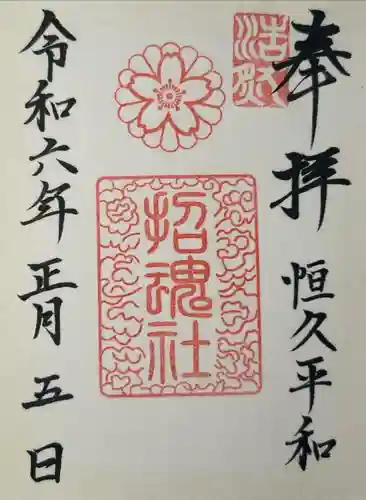 奉拝
恒久平和
招魂社
令和六年正月五日